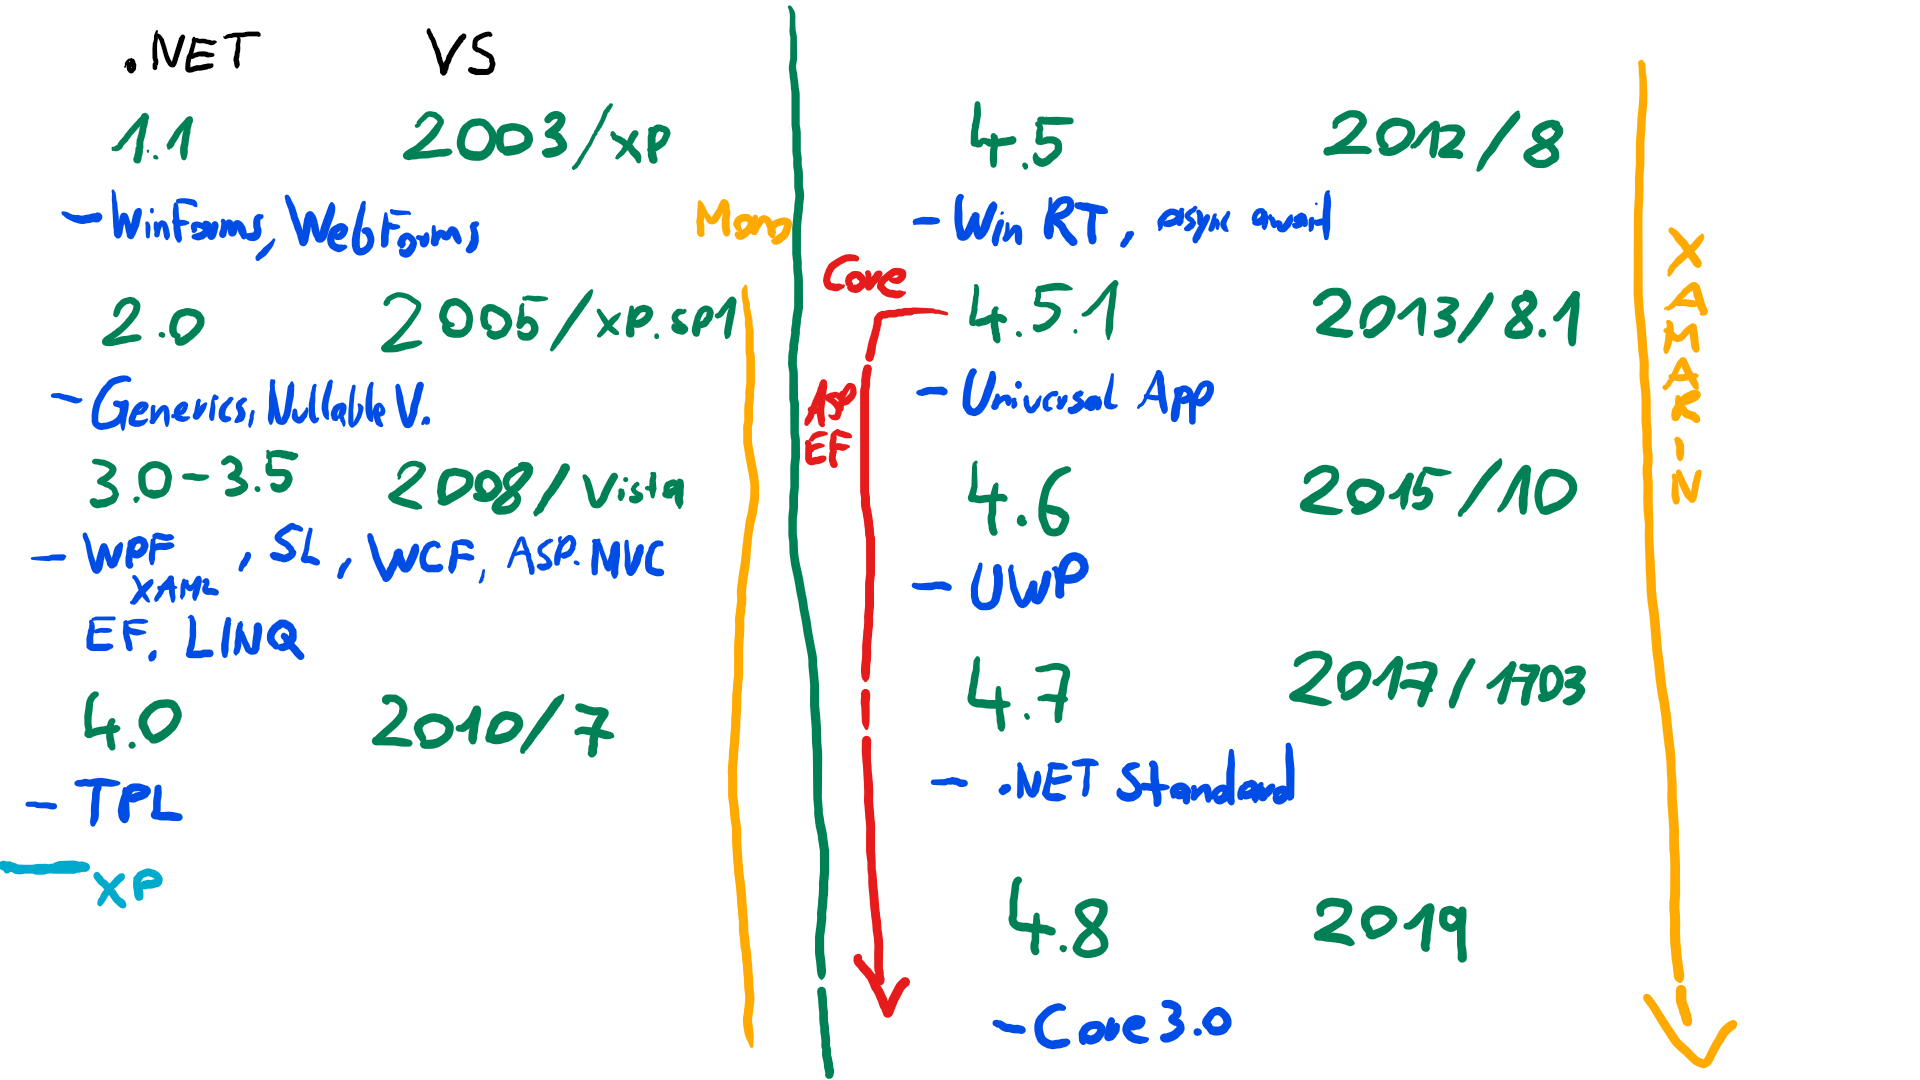 .NET VS
1.1 2003/xp
- WinForms, WebForms
Mono
2.0 2005/xp.sp1
- Generics, Nullable V.
3.0-3.5 2008/Vista
- WPF, SL, WCF, ASP.MVC
XAML
EF, LINQ
4.0 2010/7
- TPL
XP
4.5 2012/8
- Win RT, async await
Core
4.5.1 2013/8.1
ASP
EF
- Universal App
4.6 2015/10
- UWP
4.7 2017/1703
- .NET Standard
4.8 2019
- Core 3.0
XAMARIN